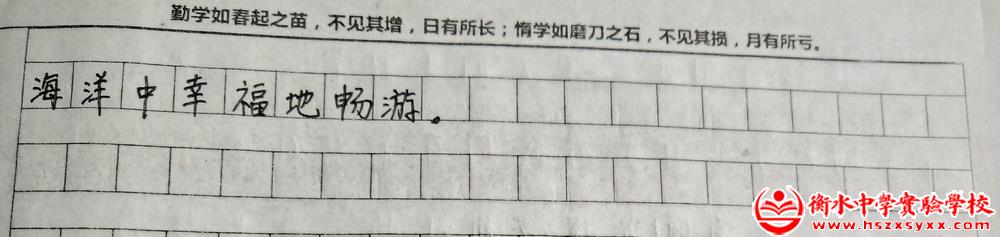 勤学如春起之苗，不见其增，日有所长；惰学如磨刀之石，不见其损，月有所亏。
海洋中幸福地畅游。
衡水中学實驗學校
www.hszxsyxx.com